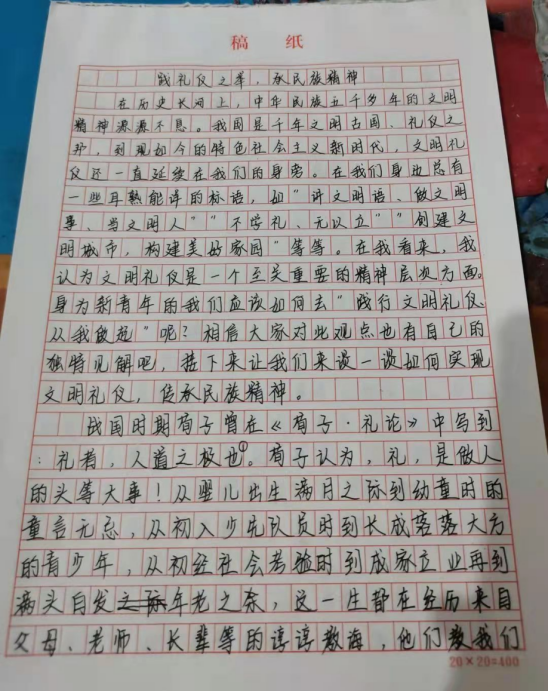 稿 纸
践礼仪之举，承民族精神
在历史长河上，中华民族五千多年的文明
精神源源不息。我国是千年文明古国、礼仪之
邦，到现如今的特色社会主义新时代，文明礼
仪还一直延续在我们的身旁。在我们身边总有
一些耳熟能详的标语，如“讲文明语、做文明
事、当文明人”“不学礼、无以立”“创建文
明城市，构建美好家园”等等。在我看来，我
认为文明礼仪是一个至关重要的精神层次方面。
身为新青年的我们应该如何去“践行文明礼仪、
从我做起”呢？相信大家对此观点也有自己的
独特见解吧，接下来让我们来谈一谈如何实现
文明礼仪，传承民族精神。
战国时期荀子曾在《荀子·礼论》中写到
：礼者，人道之极也①。荀子认为，礼，是做人
的头等大事！从婴儿出生满月之际到幼童时的
童言无忌，从初入少先队员时到长成落落大方
的青少年，从初经社会考验时到成家立业再到
满头白发年老之余，这一生都在经历来自
父母、老师、长辈等的谆谆教诲，他们教我们
20×20=400